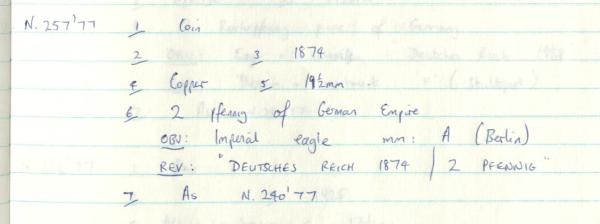 N. 257'77 1 Coin
2 3 1874
4 Copper 5 19½mm
6 2 pfennig of German Empire
OBV: Imperial eagle mm: A (Berlin)
REV: "DEUTSCHES REICH 1874 / 2 PFENNIG"
7 As N. 240'77